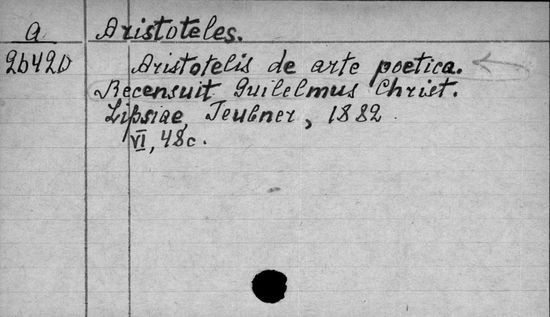 a Aristoteles.
2b420 Aristotelis de arte poetica.
Recensuit Guilelmus Christ.
Lipsiae, Teubner, 1882
VI, 48c.